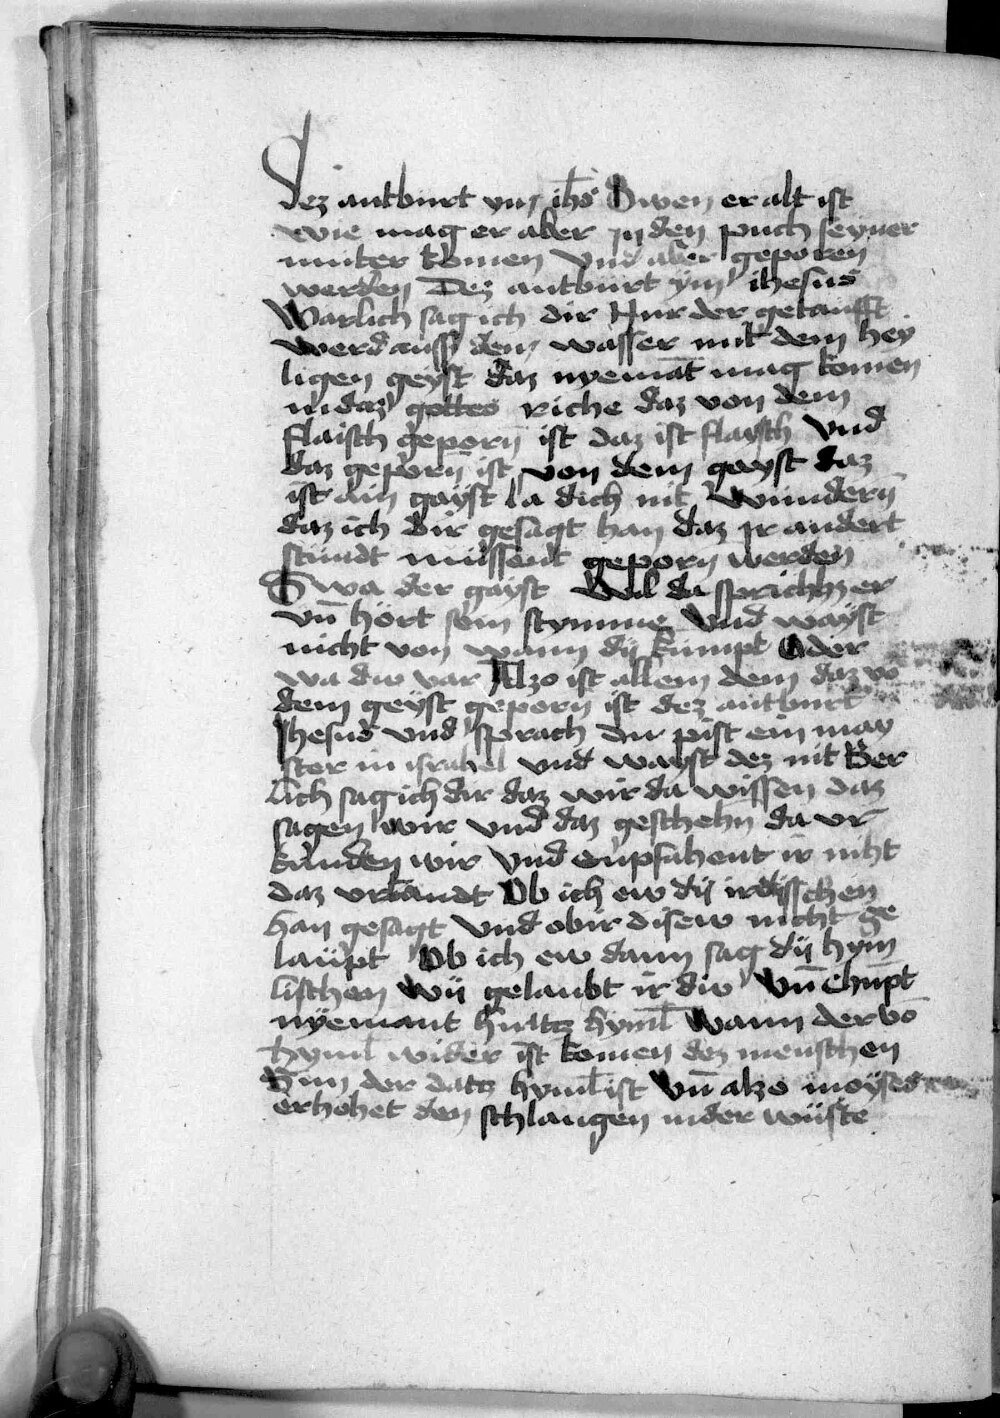 dez antburt ym ihs Swen er alt ist
wie mag er aber in den puch seyner
muter komen vnd aber geporen
werden Dez antburt ym ihesus
Warlich sag ich dir Nur der getaufft
werd auss dem wasser mit dem hey
ligen geyst daz nyemāt mag komen
in daz gottes riche daz von dem
flaisch geporn ist daz ist flaysch Vnd
daz geporn ist von dem gayst daz
ist ain gayst la dich nit wundern
daz ich dir gesagt han daz ir andert
stundt müssent geporn werden
Swa der gayst Wil da sprichz er
vn̄ hört sein stymme Vnd wayst
nicht von wann dij kumpt Oder
wa diw var Alzo ist allem dem daz vō
dem geyst geporn ist dez antburt
Jhesus vnd sprach du pist ein may
ster in israhel vnd wayst dez nit Ver
lich sag ich dir daz wir da wissen daz
sagen wir vnd daz geschehn da vr
kunden wir Vnd enpfahent ir niht
daz vrkandt Ob ich ew dij irdisschen
han gesagt Vnd ob ir disew nicht ge
laupt Ob ich ew dann sag dij hym
lischen wij gelaubt ir diw Vn̄ chūpt
nyemant hintz hyml̄ Wann der vō
hyml̄ wider ist komen dez menschen
Sun der datz hyml̄ ist Vn̄ alzo moyses
erhohet den schlangen in der wüste